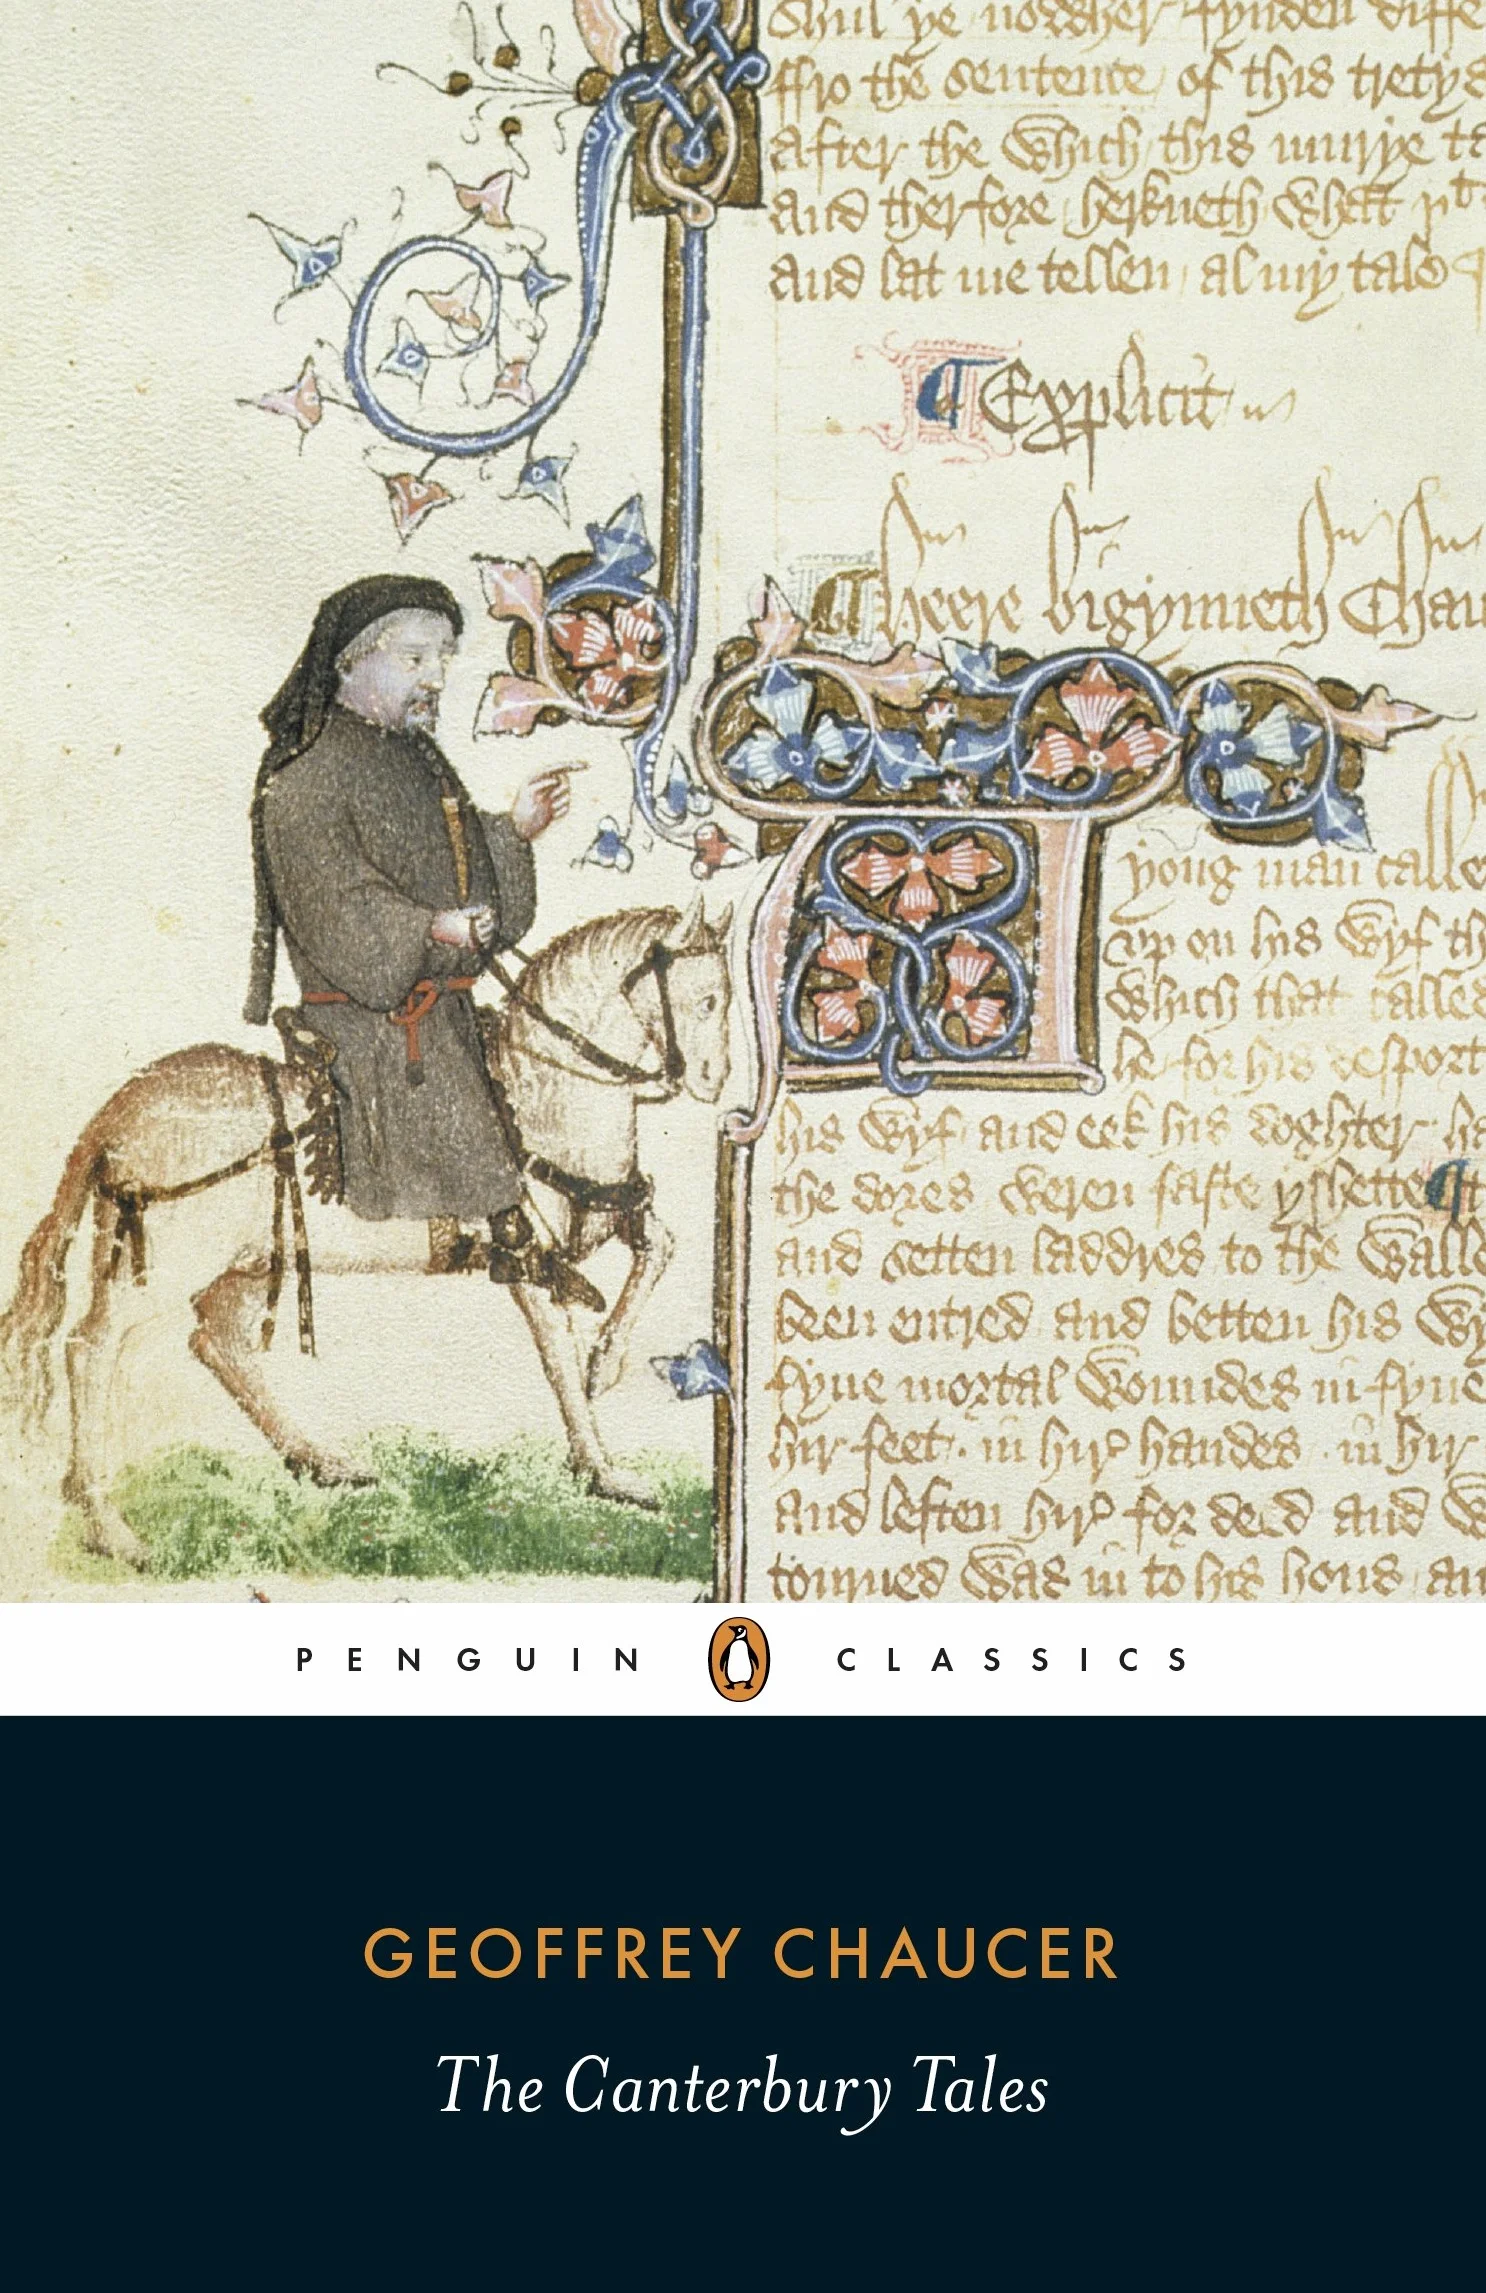 Shul ye nowher fynden diffe
ffro the sentence of this tretys
after the which this murye ta
and therfore herkneth what
and lat me tellen al my tale
Explicit
Heere bigynneth Chau
yong man calle
up on his wyf th
which that called
he for his desport
his wyf and eek his doghter ha
the dores weren faste yshette
and setten laddres to the walle
been entred and betten his wy
fyue mortal woundes in fyue
hir feet. in hir handes. in hir
and leften hir for deed and w
tourned was in to his hous an
PENGUIN CLASSICS
GEOFFREY CHAUCER
The Canterbury Tales